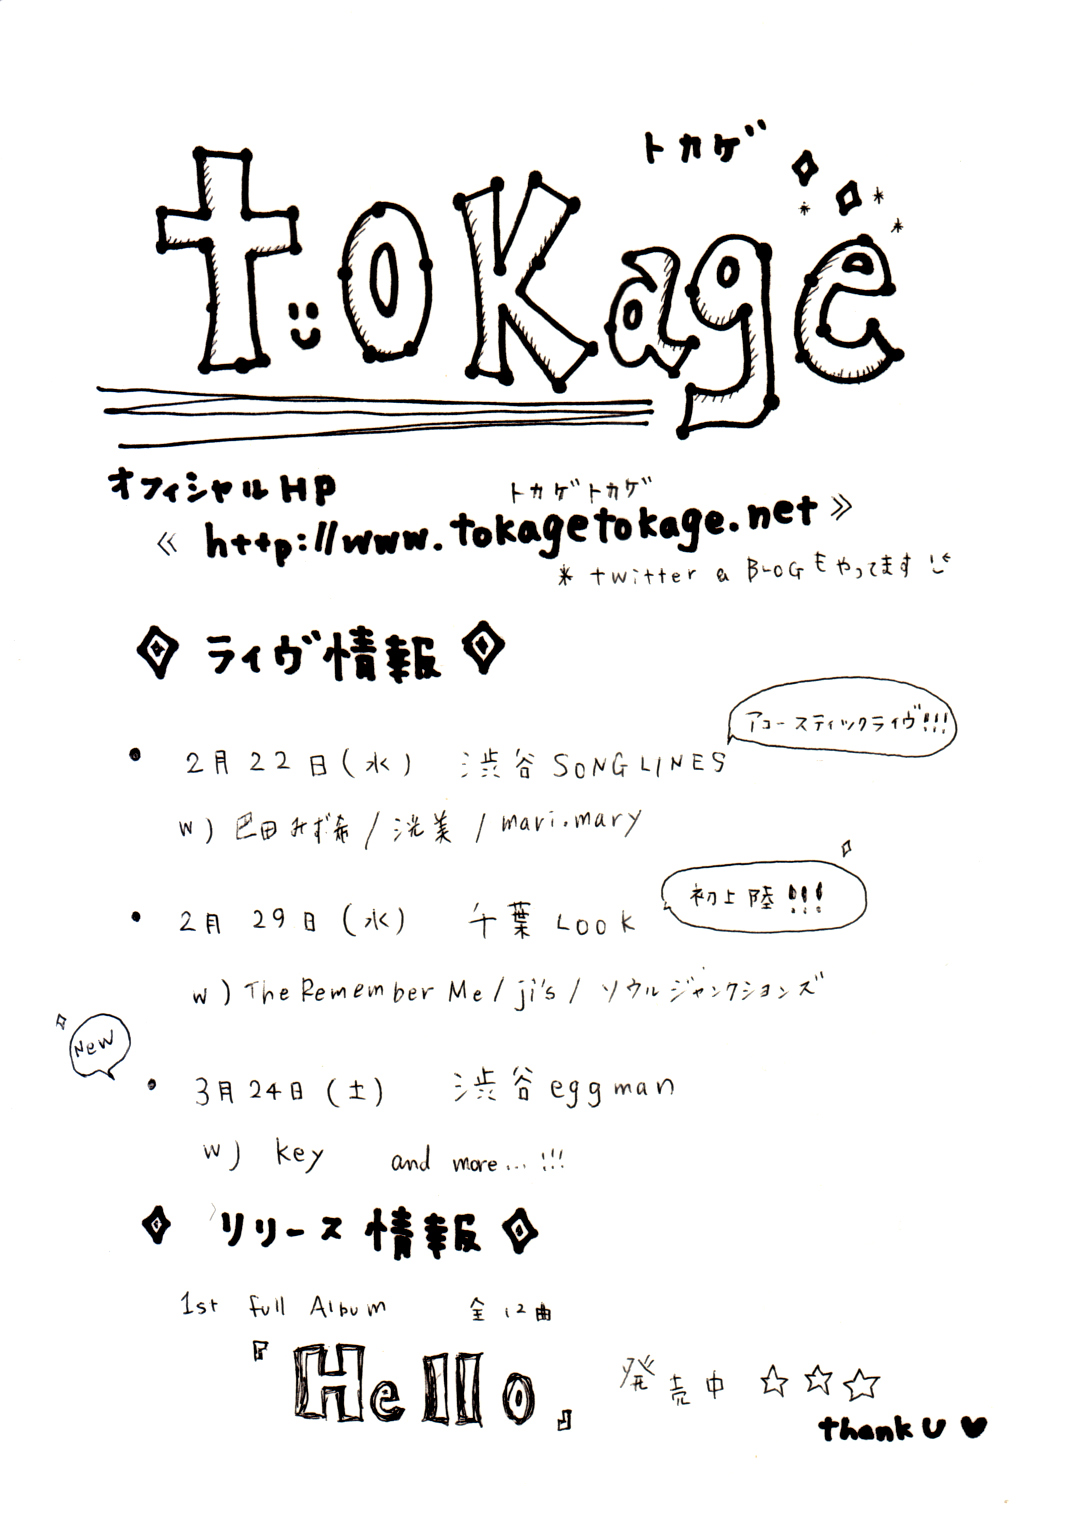 トカゲ
tokage
オフィシャルHP
トカゲトカゲ
《 http://www.tokagetokage.net 》
* twitter & BLOGもやってます
ライヴ情報
アコースティックライヴ!!!
・2月22日(水) 渋谷SONGLINES
w) 巴田みず希 / 洸美 / mari.mary
初上陸!!!
・2月29日(水) 千葉LOOK
w) The Remember Me / ji's / ソウルジャンクションズ
NEW
・3月24日(土) 渋谷eggman
w) key and more...!!!
リリース情報
1st full Album 全12曲
『Hello』 発売中 ☆☆☆
thank U ♥